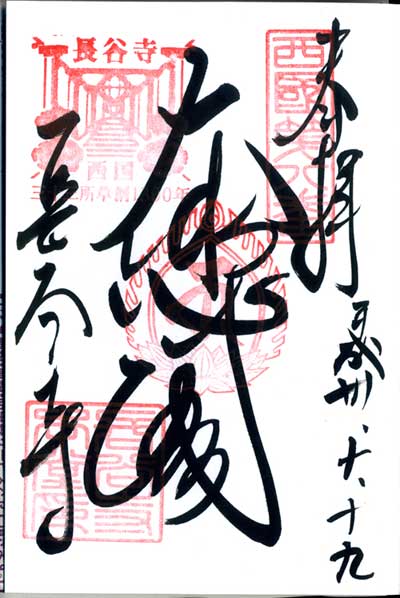 西國第八番
奉拝
平成卅、十、十九
大悲閣
長谷寺
長谷寺
西国
三十三所草創1300年